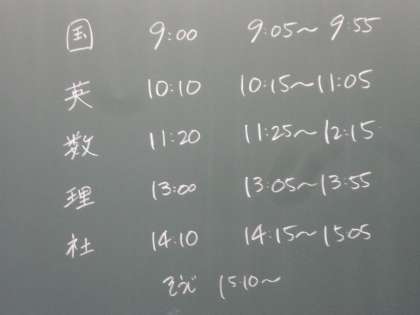 国 9:00 9:05〜9:55
英 10:10 10:15〜11:05
数 11:20 11:25〜12:15
理 13:00 13:05〜13:55
社 14:10 14:15〜1505
15:10〜